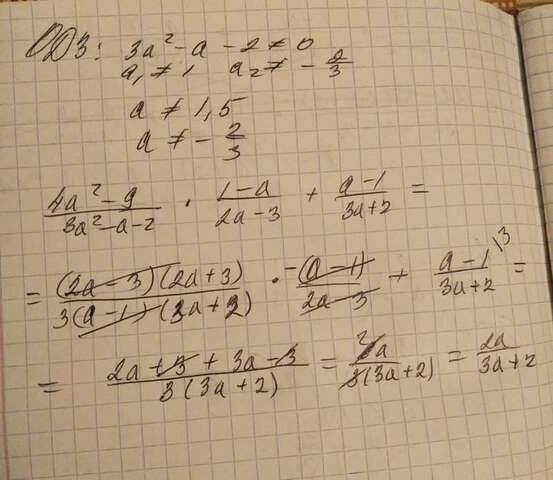 ОДЗ: 3a² - a - 2 ≠ 0
a₁ ≠ 1 a₂ ≠ - 2/3
a ≠ 1,5
a ≠ - 2/3
(4a² - 9)/(3a² - a - 2) · (1 - a)/(2a - 3) + (a - 1)/(3a + 2) =
= ((2a - 3)(2a + 3))/(3(a - 1)(3a + 2)) · (-(a - 1))/(2a - 3) + (a - 1)/(3a + 2) \3 =
= (2a + 3 + 3a - 3)/(3(3a + 2)) = /(3(3a + 2)) = 2a/(3a + 2)